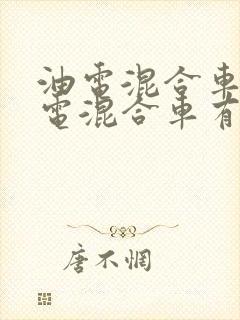 油電混合車
電混合車有
唐不惘